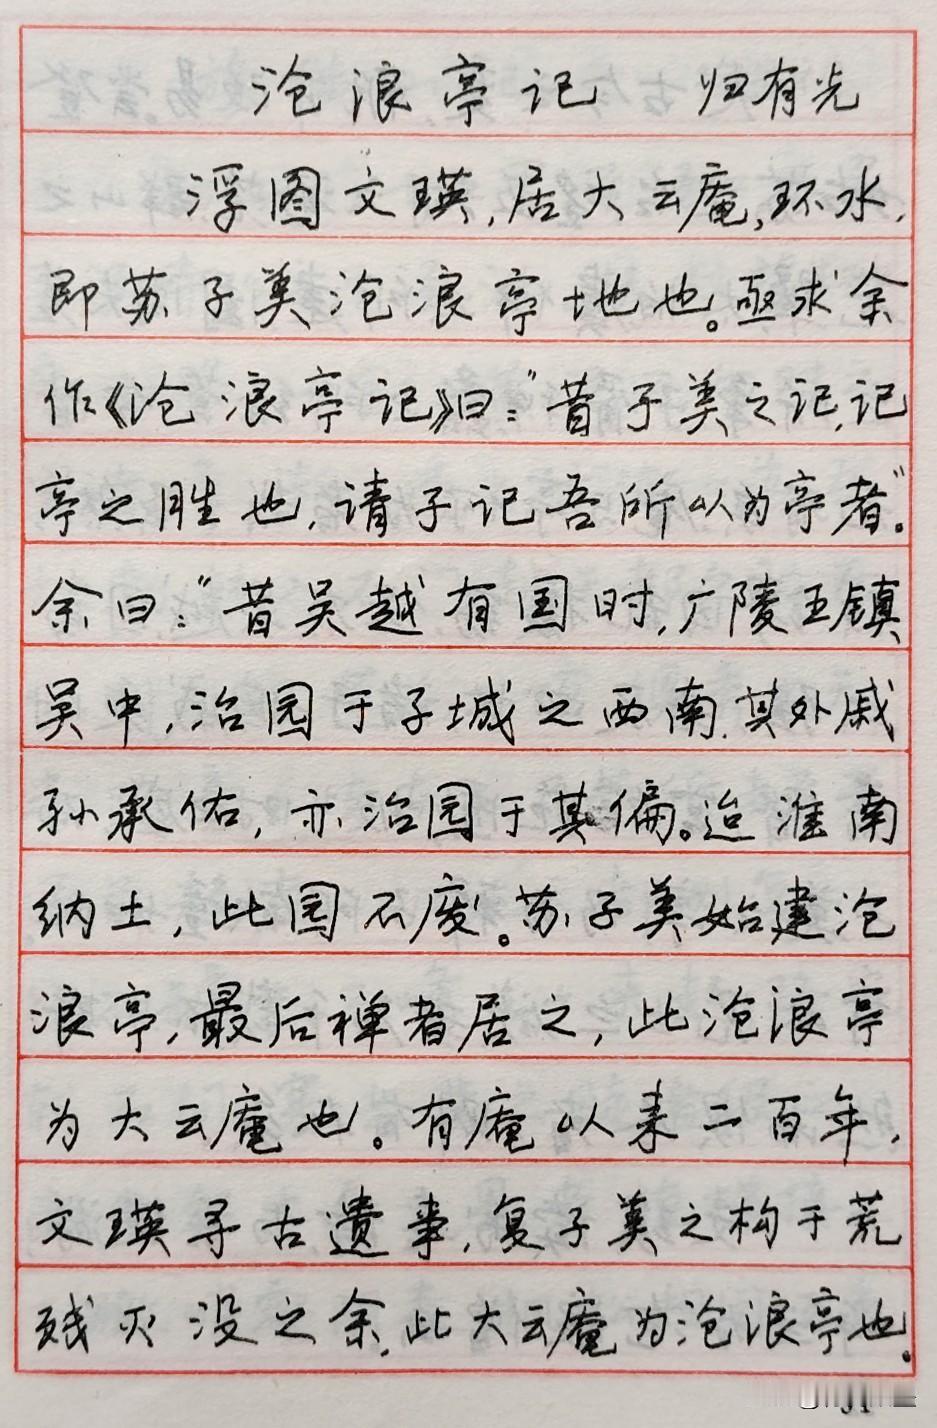 沧浪亭记 归有光
浮图文瑛,居大云庵,环水,
即苏子美沧浪亭地也。亟求余
作《沧浪亭记》曰:"昔子美之记,记
亭之胜也,请子记吾所以为亭者"。
余曰:"昔吴越有国时,广陵王镇
吴中,治园于子城之西南.其外戚
孙承佑,亦治园于其偏。迨淮南
纳土,此园不废。苏子美始建沧
浪亭,最后禅者居之,此沧浪亭
为大云庵也。有庵以来二百年,
文瑛寻古遗事,复子美之构于荒
残灭没之余.此大云庵为沧浪亭也.